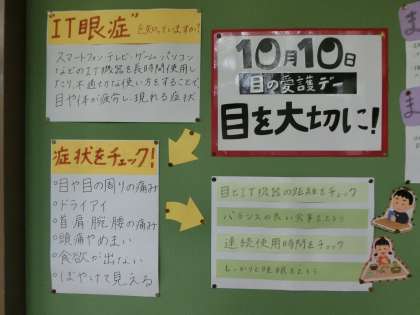 "IT眼症"を知っていますか?
スマートフォン、テレビ、ゲーム、パソコン
などのIT機器を長時間使用し
たり、不適切な使い方をすることで、
目や体が疲労し、現れる症状
10月10日
目の愛護デー
目を大切に!
症状をチェック!
○目や目の周りの痛み
○ドライアイ
○首肩腕腰の痛み
○頭痛やめまい
○食欲が出ない
○ぼやけて見える
目とIT機器の距離をチェック
バランスの良い食事をとろう
連続使用時間をチェック
しっかりと睡眠をとろう
ま
ま